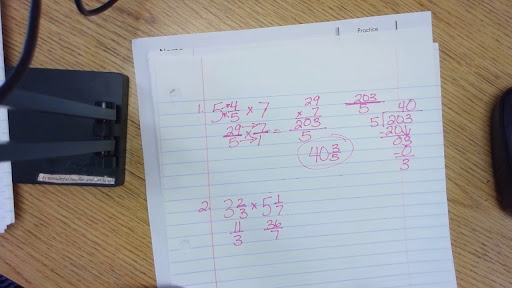 Practice
1. 5 4/5 x 7
29/5 x 7/1 =
29
x 7
203
5
40 3/5
203/5
40
5 203
20
03
0
3
2. 3 2/3 x 5 1/7
11/3 36/7